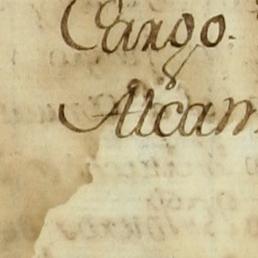 Cargo.
Alcam